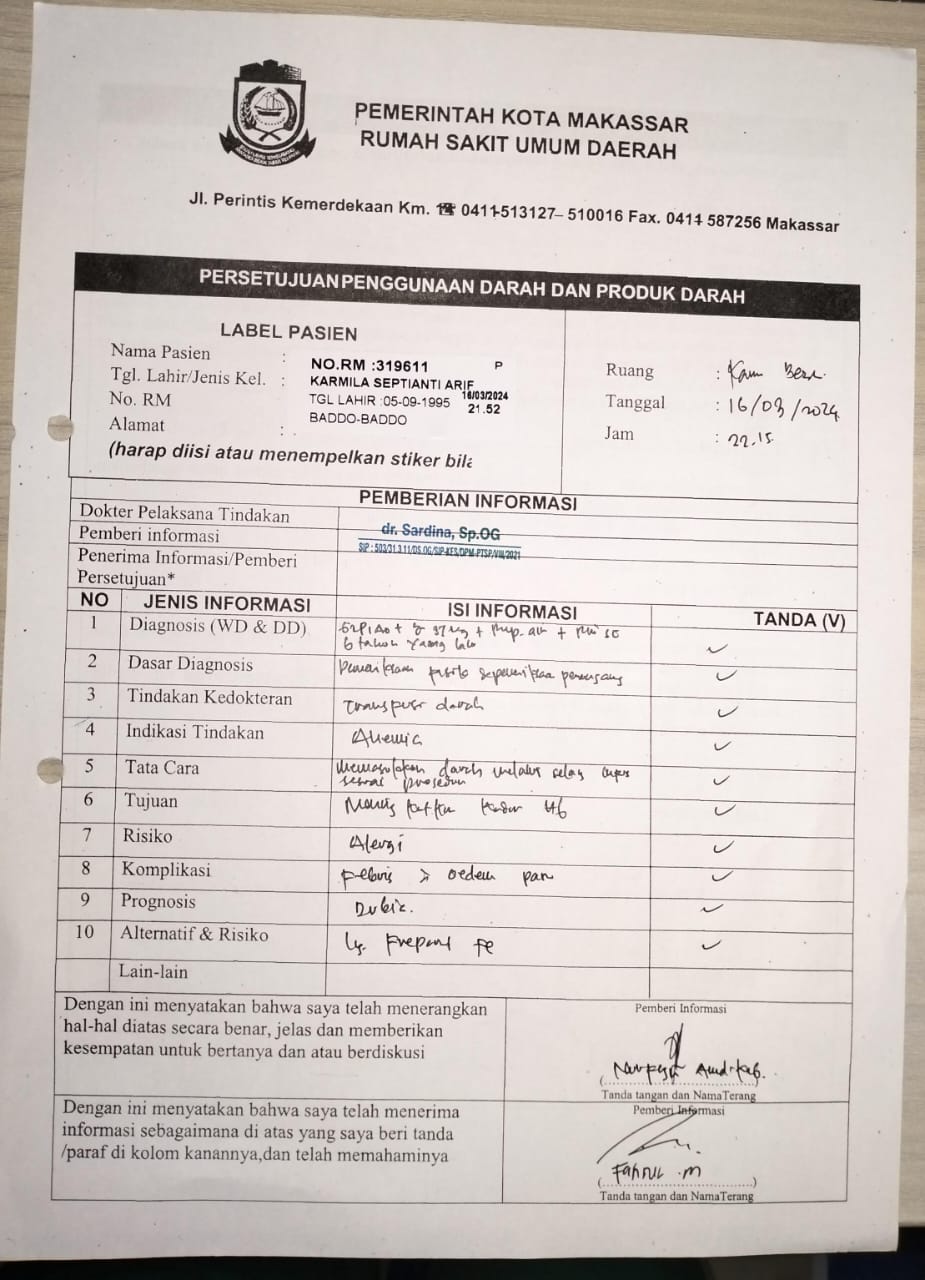 PEMERINTAH KOTA MAKASSAR
RUMAH SAKIT UMUM DAERAH
Jl. Perintis Kemerdekaan Km. ☎ 0411-513127– 510016 Fax. 0411 587256 Makassar
PERSETUJUAN PENGGUNAAN DARAH DAN PRODUK DARAH
LABEL PASIEN
Nama Pasien :
Tgl. Lahir/Jenis Kel. :
No. RM
Alamat :
NO.RM :319611 P
KARMILA SEPTIANTI ARIF
TGL LAHIR :05-09-1995 16/03/2024
21.52
BADDO-BADDO
(harap diisi atau menempelkan stiker bila
Ruang :
Tanggal : 16/03/2024
Jam : 22.15
PEMBERIAN INFORMASI
Dokter Pelaksana Tindakan
Pemberi informasi
dr. Sardina, Sp.OG
Penerima Informasi/Pemberi
Persetujuan*
NO JENIS INFORMASI ISI INFORMASI TANDA (V)
1 Diagnosis (WD & DD) 6 tahun yang lalu ✓
2 Dasar Diagnosis ✓
3 Tindakan Kedokteran Transfusi darah ✓
4 Indikasi Tindakan Anemia ✓
5 Tata Cara darah melalui selang infus
sesuai prosedur ✓
6 Tujuan kadar Hb ✓
7 Risiko Alergi ✓
8 Komplikasi Febris oedem ✓
9 Prognosis ✓
10 Alternatif & Risiko Fe ✓
Lain-lain
Dengan ini menyatakan bahwa saya telah menerangkan
hal-hal diatas secara benar, jelas dan memberikan
kesempatan untuk bertanya dan atau berdiskusi
Pemberi Informasi
Tanda tangan dan NamaTerang
Dengan ini menyatakan bahwa saya telah menerima
informasi sebagaimana di atas yang saya beri tanda
/paraf di kolom kanannya,dan telah memahaminya
Pemberi Informasi
Fahrul .M
Tanda tangan dan NamaTerang